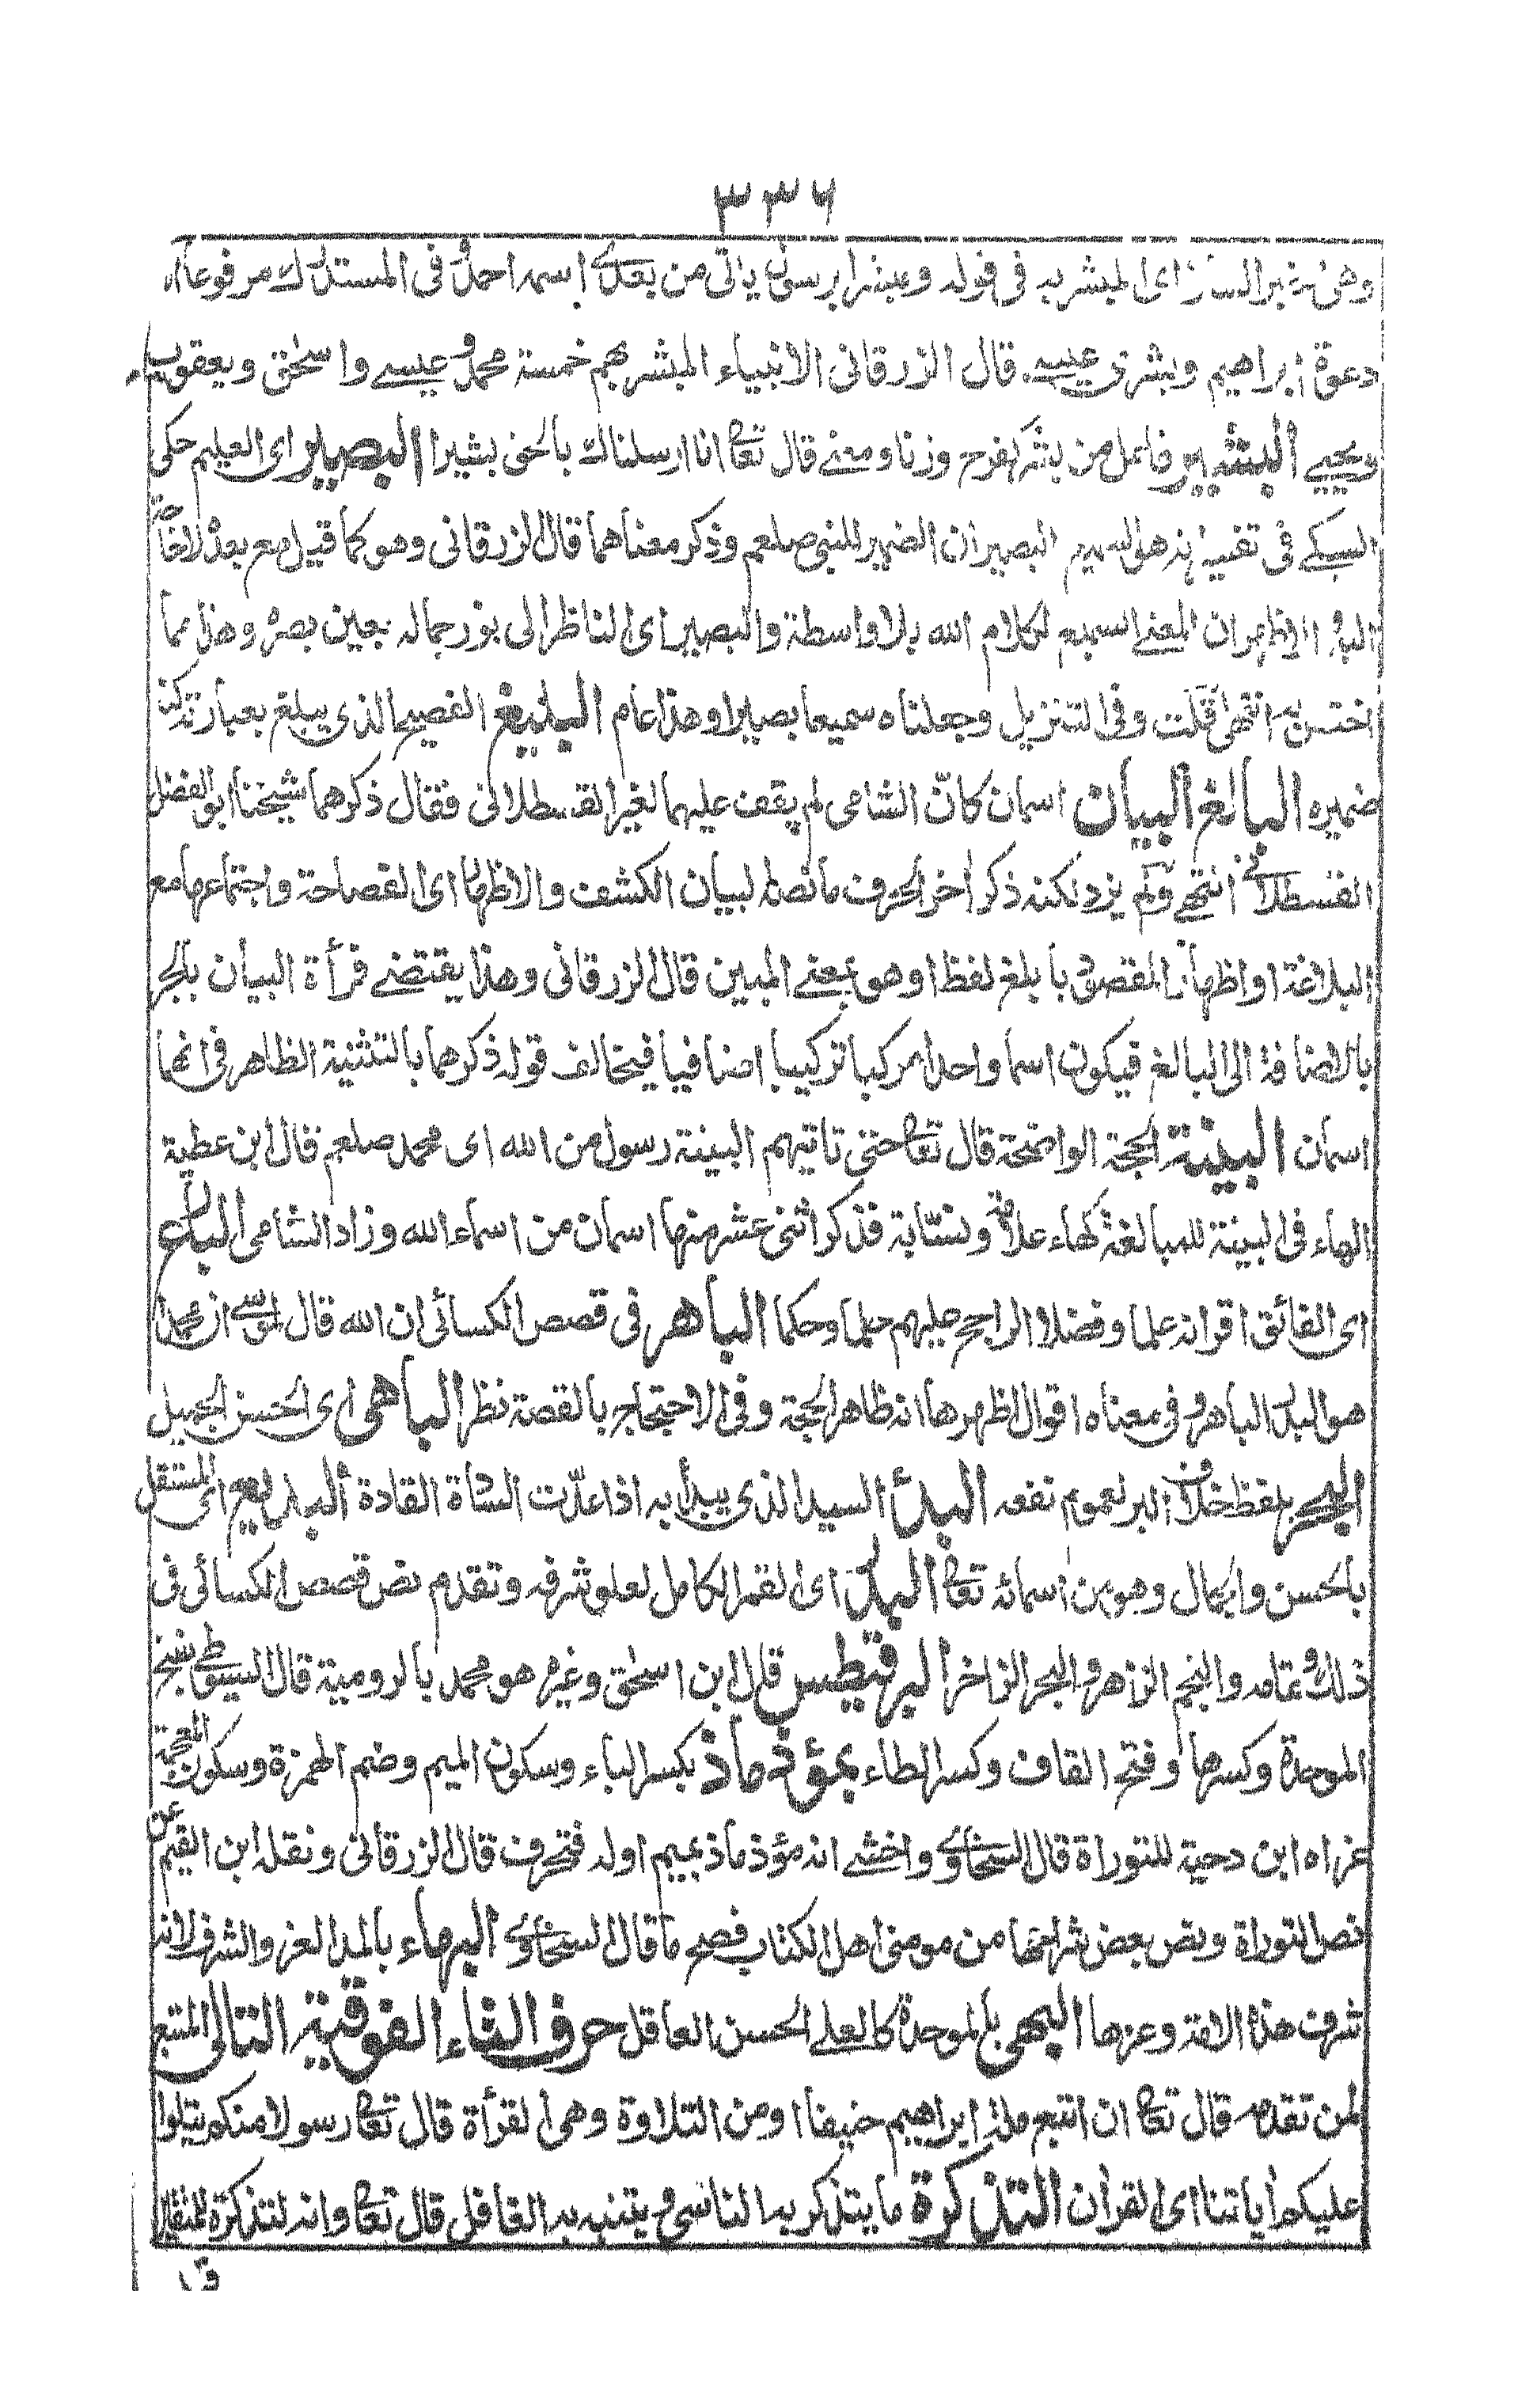 ٣٣٦
وهى الخبر السار اى المبشر به فى قوله ومبشرا برسول ياتى من بعدى اسمه احمد وفى المستدرك مرفوعا انا
دعوة ابراهيم وبشرى عيسى قال الزرقانى الانبياء المبشر بهم خمسة محمد وعيسى واسحٰق ويعقوب
ويحيى البشير فاعل من بشر كفرح وزنا ومعنى قال تعالى انا ارسلناك بالحق بشيرا البصير اى العليم حكى
السبكى فى تفسيرانه هو السميع البصير ان الضمير للنبى صلعم وذكر معناهما قال الزرقانى وهو كما قيل مع بعده لا
ان المعنى السميع لكلام الله بلا واسطة والبصير اى الناظر الى نور جماله بعين بصره وهذا مما
اختص به انتهى قلت وفى التنزيل وجعلناه سميعا بصيرا وهذا عام البليغ الفصيح الذى يبلغ بعبارته كنه
ضميره البالغ البيان اسمان كان الشامى لم يقف عليهما لغير القسطلانى فقال ذكرهما شيخنا ابو الفضل
القسطلانى انتهى ولم يزد لكنه ذكر اخر الحرف ما نصه البيان الكشف والاظهار اى الفصاحة واجتماعها مع
البلاغة او اظهار المقصود بابلغ لفظ او هو بمعنى المبين قال الزرقانى وهذا يقتضى قرأة البيان بالجر
بالاضافة الى البالغ فيكون اسما واحدا مركبا تركيبا اضافيا فيخالف قوله ذكرهما بالتثنية الظاهر فى انهما
اسمان البينة الحجة الواضحة قال تعالى حتى تاتيهم البينة رسول من الله اى محمد صلعم قال ابن عطية
الهاء فى البينة للمبالغة كهاء علامة ونسّابة فذكر اثنى عشر منها اسمان من اسماء الله وزاد الشامى البارع
اى الفائق اقرانه علما وفضلا الراجح عليهم حلما وحكما الباهر فى قصص الكسائى ان الله قال لموسى ان محمدا
هو البدر الباهر وفى معناه اقوال اظهرها انه ظاهر الحجة وفى الاحتجاج بالقصة نظر الباهى اى الحسن الجميل
البحر بلفظ خلاف البر لعموم نفعه البدأ السيد الذى يبدأ به اذا عدّت السادة القادة البديع اى المستقل
بالحسن والجمال وهو من اسمائه تعالى البدر اى القمر الكامل لعلو شرفه وتقدم نص قصص الكسائى فى
ذلك وتمامه والنجم الزاهر والبحر الزاخر البرقيطس قال ابن اسحٰق وغيره هو محمد بالرومية قال السيوطى بفتح
الموحدة وكسرها وفتح القاف وكسر الطاء بمؤذ ماذ بكسر الباء وسكون الميم وضم الهمزة وسكون المعجمة
عزاه ابن دحية للتوراة قال السخاوى واخشى انه مؤذ ماذ بميم اوله فتحرف قال الزرقانى ونقله ابن القيم عن
نص التوراة ونص بعض شراحها من مومنى اهل الكتاب فصح ما قال السخاوى البهاء بالمد العز والشرف لانه
شرف هذه الامة وعزها البهى بالموحدة كالعلى الحسن العاقل حرف التاء الفوقية التالى المتبع
لمن تقدمه قال تعالى ان اتبع ملة ابراهيم حنيفا او من التلاوة وهى القرأة قال تعالى رسولا منكم يتلوا
عليكم اياتنا اى القران التذكرة ما يتذكر به الناسى ويتنبه به الغافل قال تعالى وانه لتذكرة للمتقين